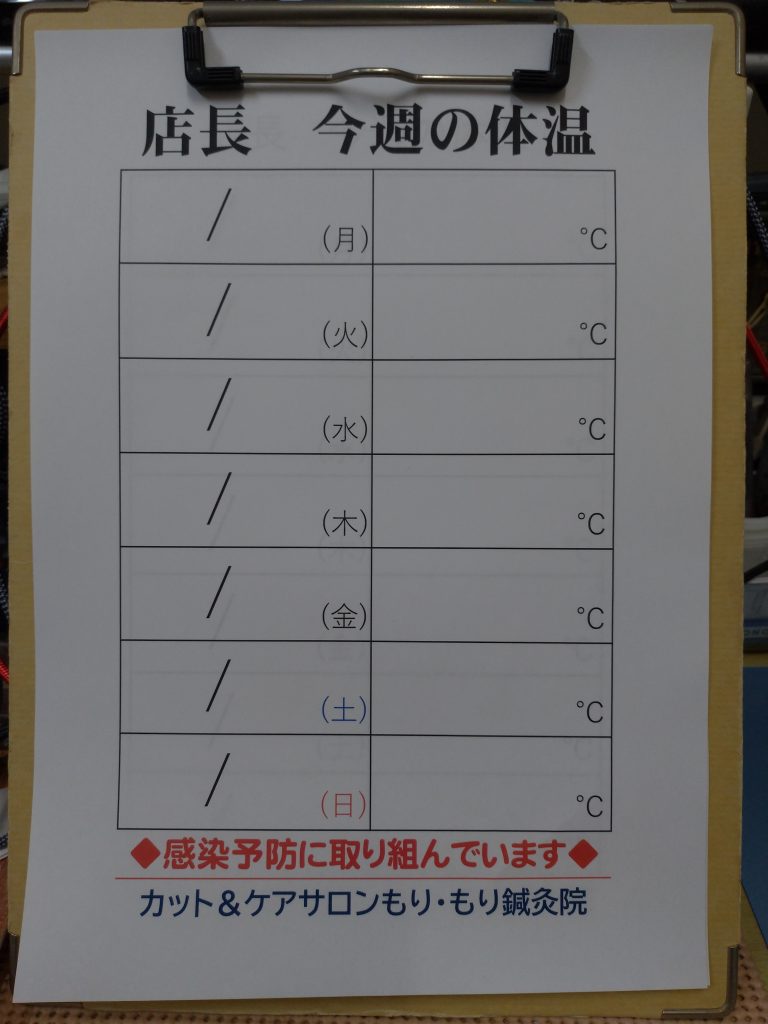 店長　今週の体温
/ (月) °C
/ (火) °C
/ (水) °C
/ (木) °C
/ (金) °C
/ (土) °C
/ (日) °C
◆感染予防に取り組んでいます◆
カット＆ケアサロンもり・もり鍼灸院